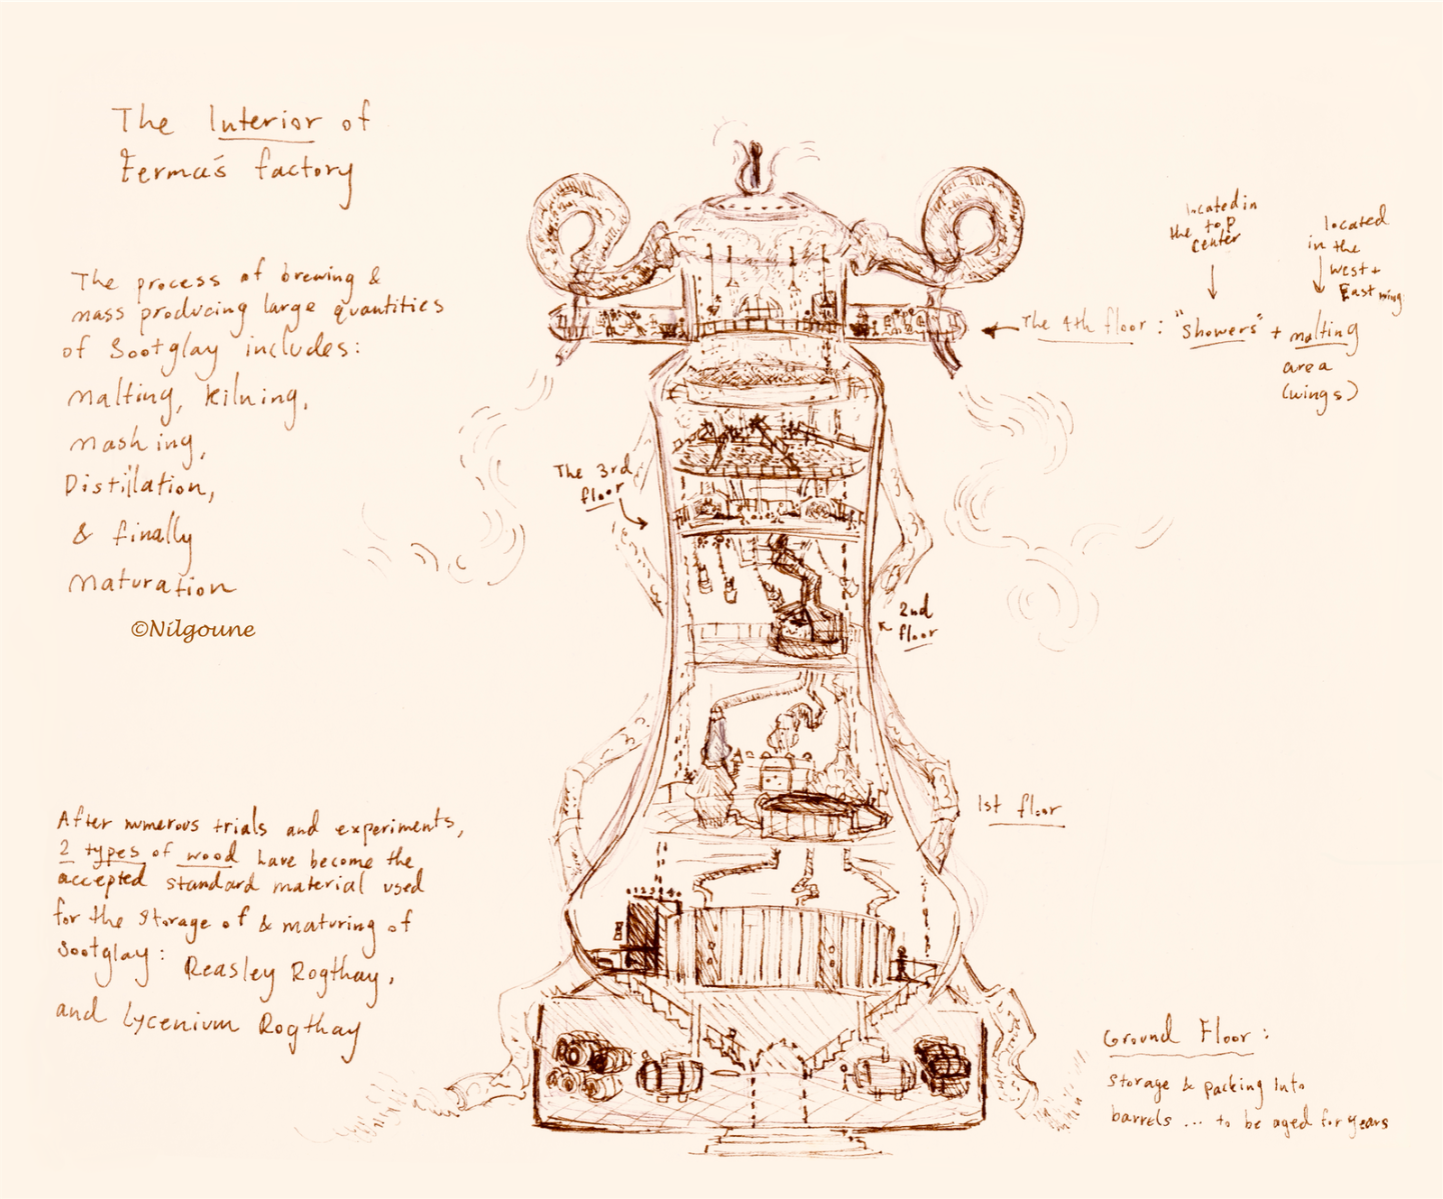 The Interior of
Ferma's factory
The process of brewing &
mass producing large quantities
of Sootglay includes:
Malting, Kilning,
Mashing,
Distillation,
& finally
Maturation
©Nilgoune
After numerous trials and experiments,
2 types of wood have become the
accepted standard material used
for the storage of & maturing of
Sootglay: Reasley Rogthay,
and Lycenium Rogthay
The 3rd
floor
located in
the top
center
located
in the
West +
East wing
The 4th floor: "Showers" + malting
area
(wings)
2nd
floor
1st floor
Ground Floor:
Storage & packing into
barrels ... to be aged for years